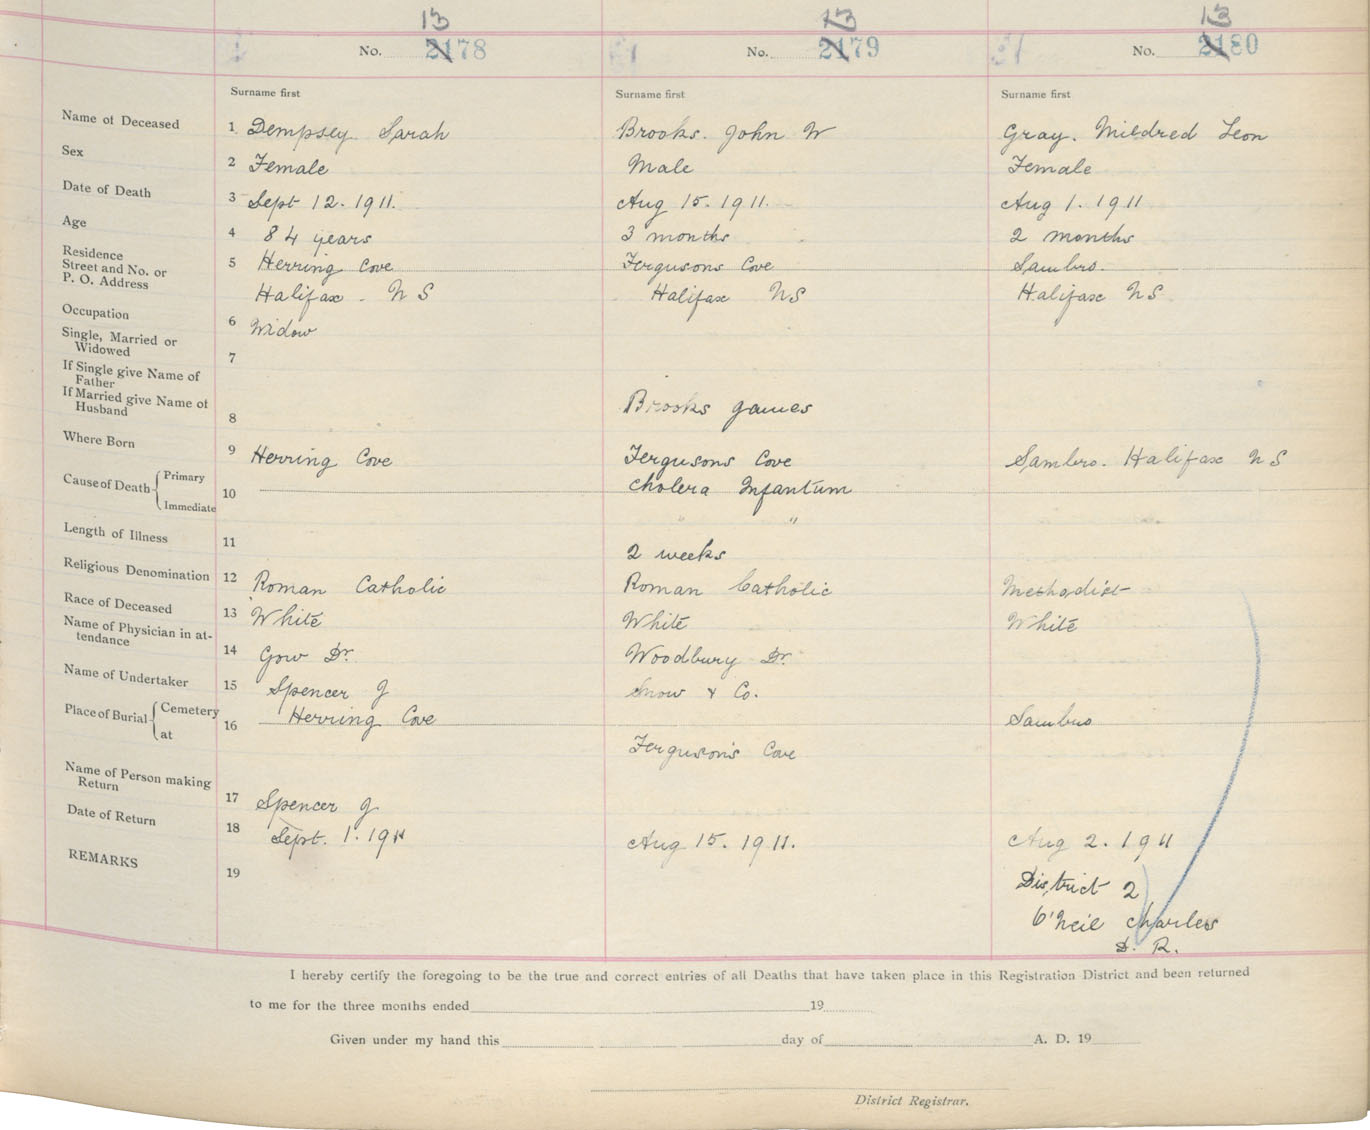 13 13 13
No. 2178 No. 2179 No. 2180
Surname first Surname first Surname first
Name of Deceased 1 Dempsey. Sarah Brooks. John W Gray. Mildred Leon
Sex 2 Female Male Female
Date of Death 3 Sept 12. 1911. Aug 15. 1911. Aug 1. 1911
Age 4 84 years 3 months 2 months
Residence
Street and No. or 5 Herring Cove Fergusons Cove Sambro.
P. O. Address Halifax. N S Halifax NS Halifax NS
Occupation 6 Widow
Single, Married or
Widowed 7
If Single give Name of
Father
If Married give Name of
Husband 8 Brooks James
Where Born 9 Herring Cove Fergusons Cove Sambro. Halifax NS
Cause of Death Primary 10 Cholera Infantum
Immediate " "
Length of Illness 11 2 weeks
Religious Denomination 12 Roman Catholic Roman Catholic Methodist
Race of Deceased 13 White White White
Name of Physician in at-
tendance 14 Gow Dr. Woodbury Dr.
Name of Undertaker 15 Spencer J Snow & Co.
Place of Burial Cemetery 16 Herring Cove Sambro
at Ferguson's Cove
Name of Person making
Return 17 Spencer J
Date of Return 18 Sept. 1. 1911 Aug 15. 1911. Aug 2. 1911
REMARKS 19 District 2
O'Neil Charles
D. R.
I hereby certify the foregoing to be the true and correct entries of all Deaths that have taken place in this Registration District and been returned
to me for the three months ended 19
Given under my hand this day of A. D. 19
District Registrar.